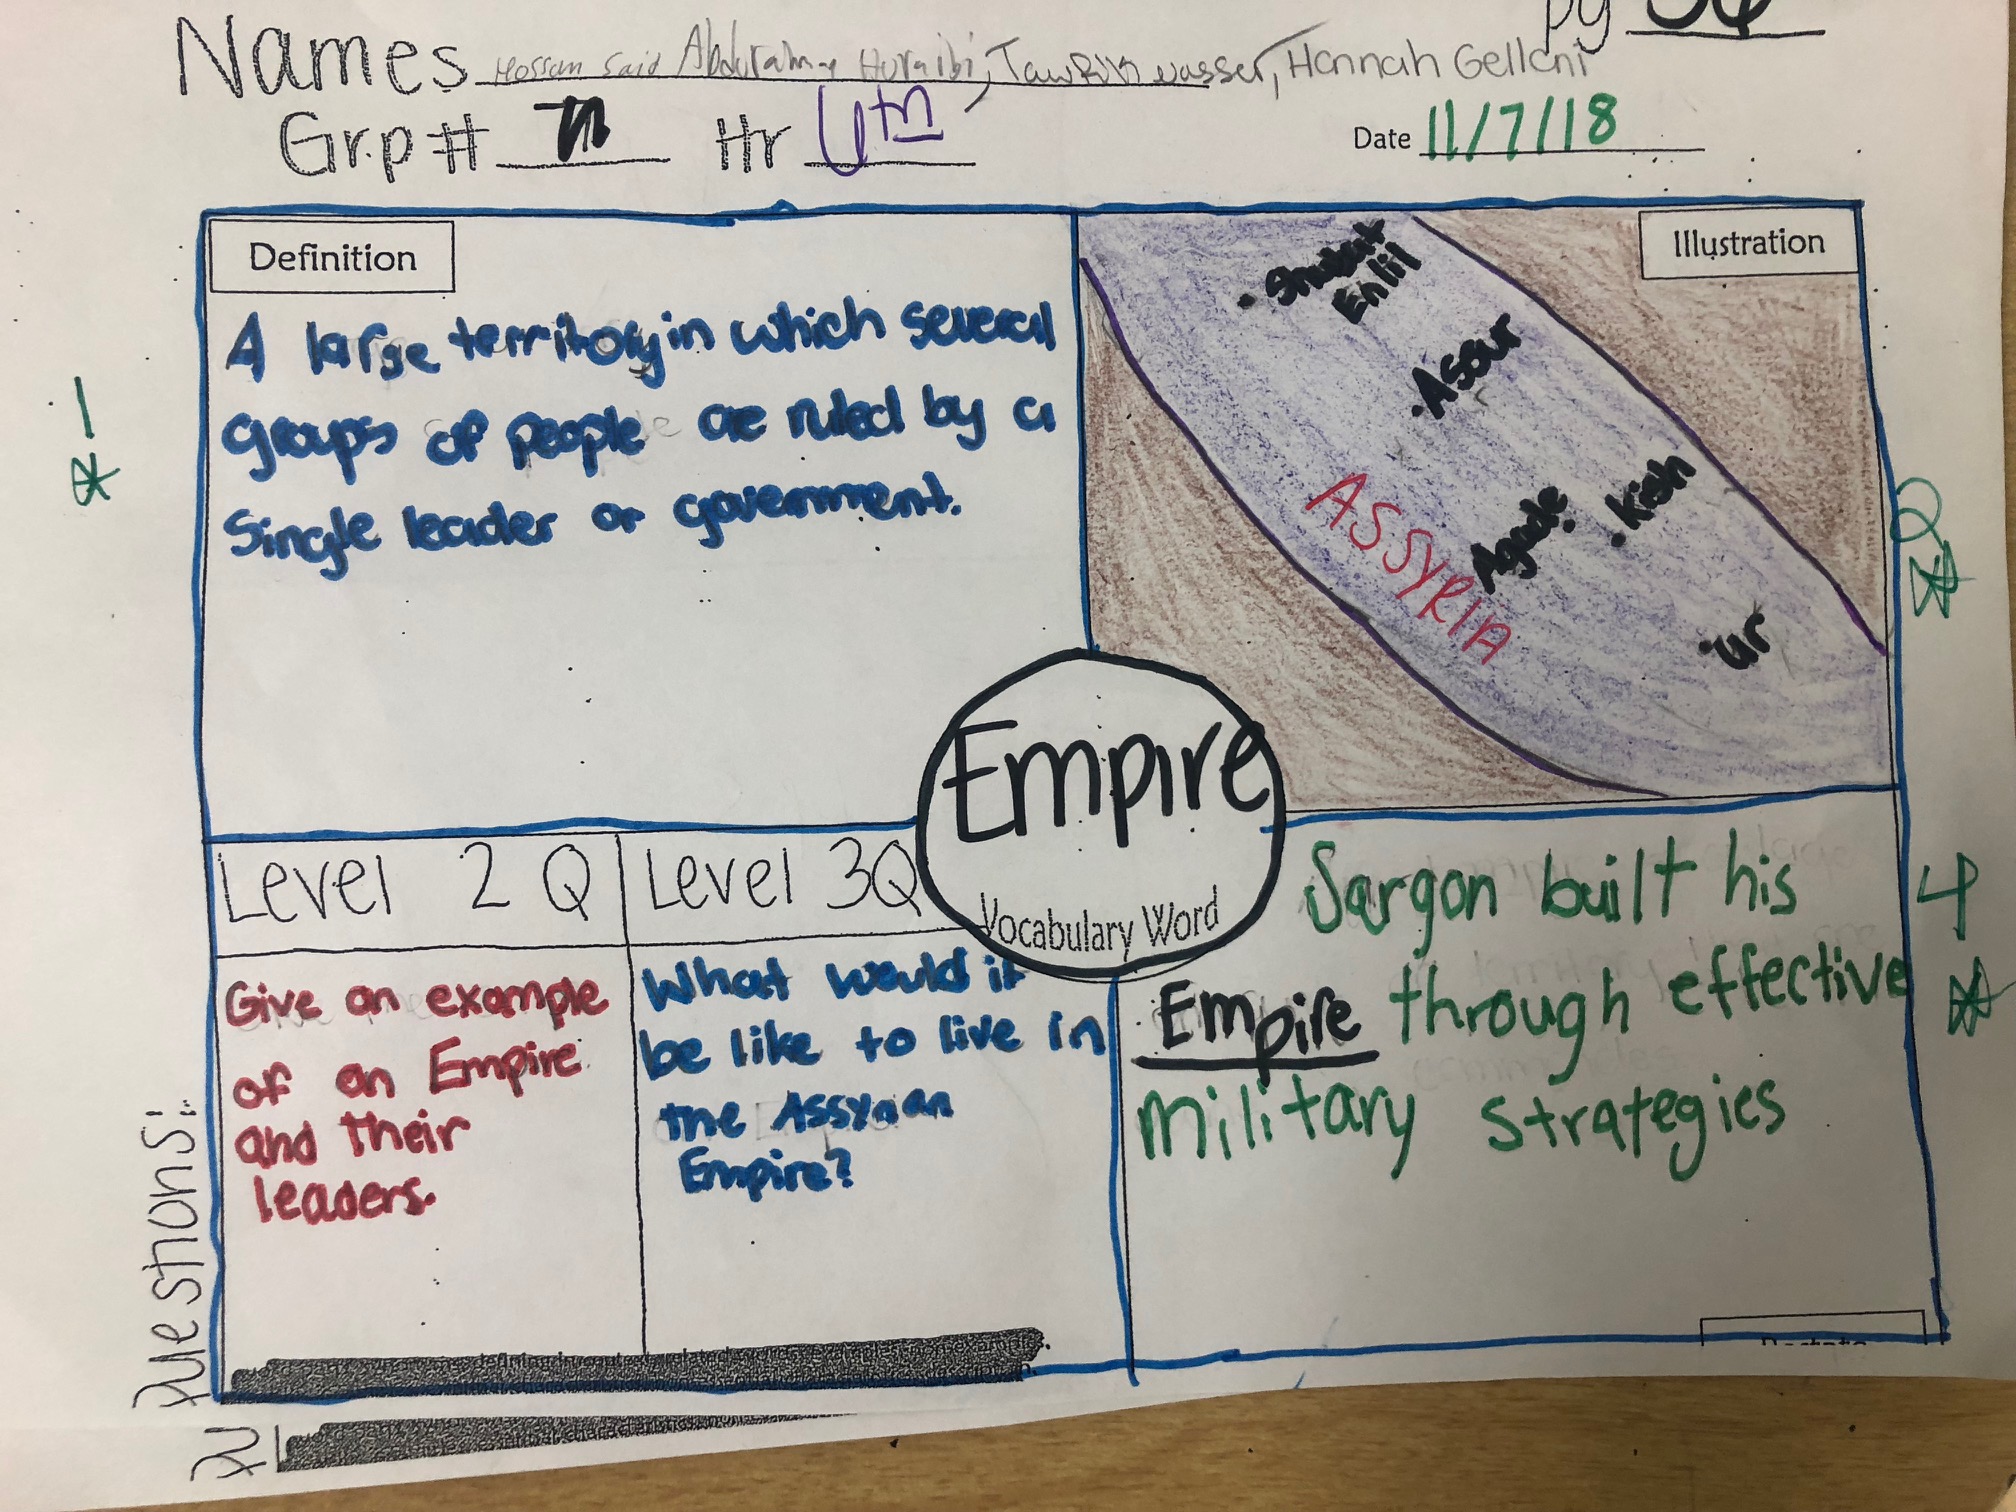 pg
Names Hossam Said Abdurahman Huraibi, Tawfik nasser, Hannah Gellani
Grp # Hr
Date 11/7/18
Definition
A large territory in which several
groups of people are ruled by a
Single leader or government.
1
Illustration
Shubat
Enlil
Assur
Kish
Agade
ASSYRIA
ur
2
Empire
Vocabulary Word
Questions:
Level 2 Q
Give an example
of an Empire
and their
leaders.
Level 3Q
What would it
be like to live in
the Assyrian
Empire?
Sargon built his
Empire through effective
military strategies
4